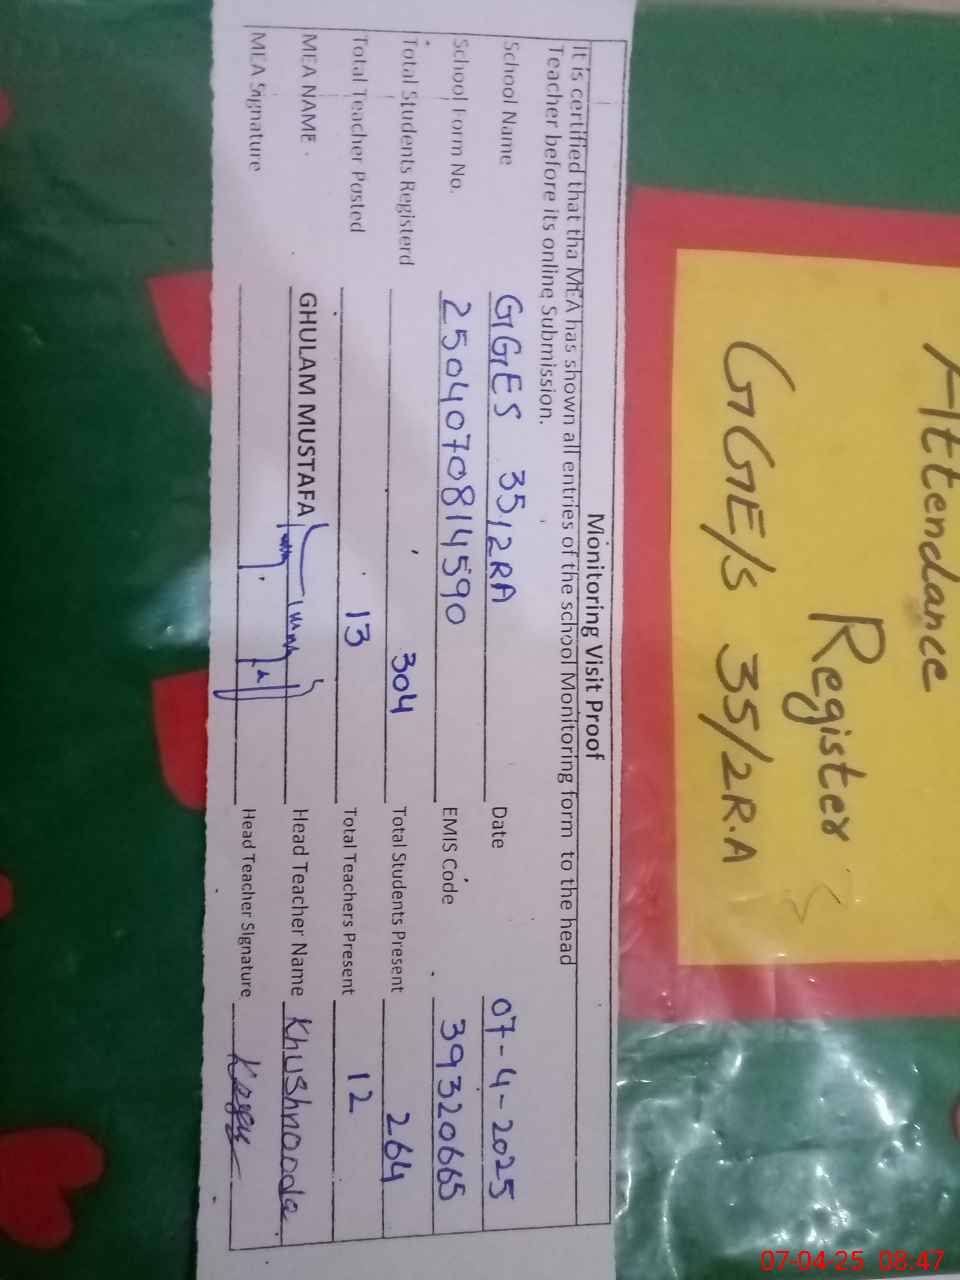 Attendance
Register
GGE/s 35/2R.A
Monitoring Visit Proof
It is certified that tha MEA has shown all entries of the school Monitoring form to the head
Teacher before its online Submission.
School Name GGES 35/2RA Date 07-4-2025
School Form No. 2504070814590 EMIS Code 39320665
Total Students Registerd 304 Total Students Present 264
Total Teacher Posted 13 Total Teachers Present 12
MEA NAME . GHULAM MUSTAFA Head Teacher Name Khushnooda
MEA Signature Head Teacher Signature
07-04-25 08:47